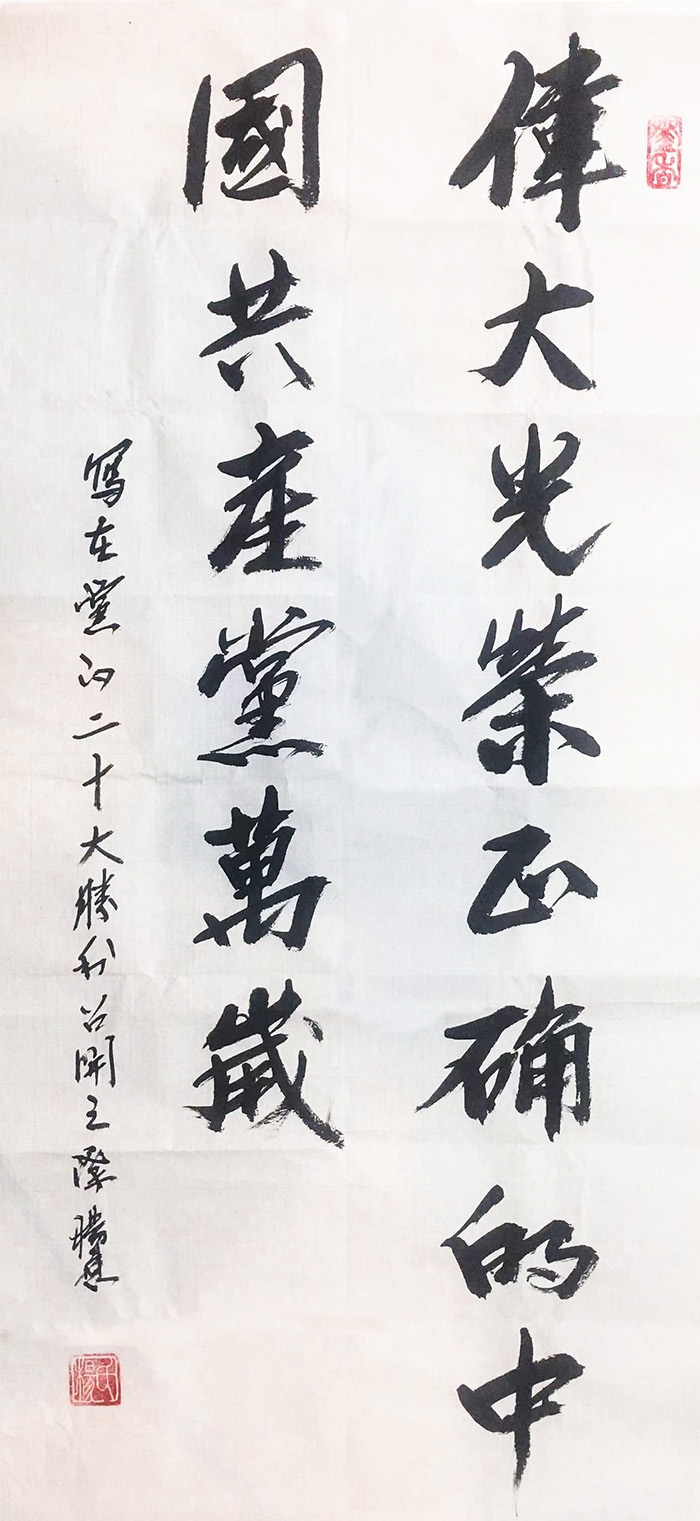 偉大光榮正确的中
國共產黨萬歲
寫在黨的二十大勝利召開之際
楊氏